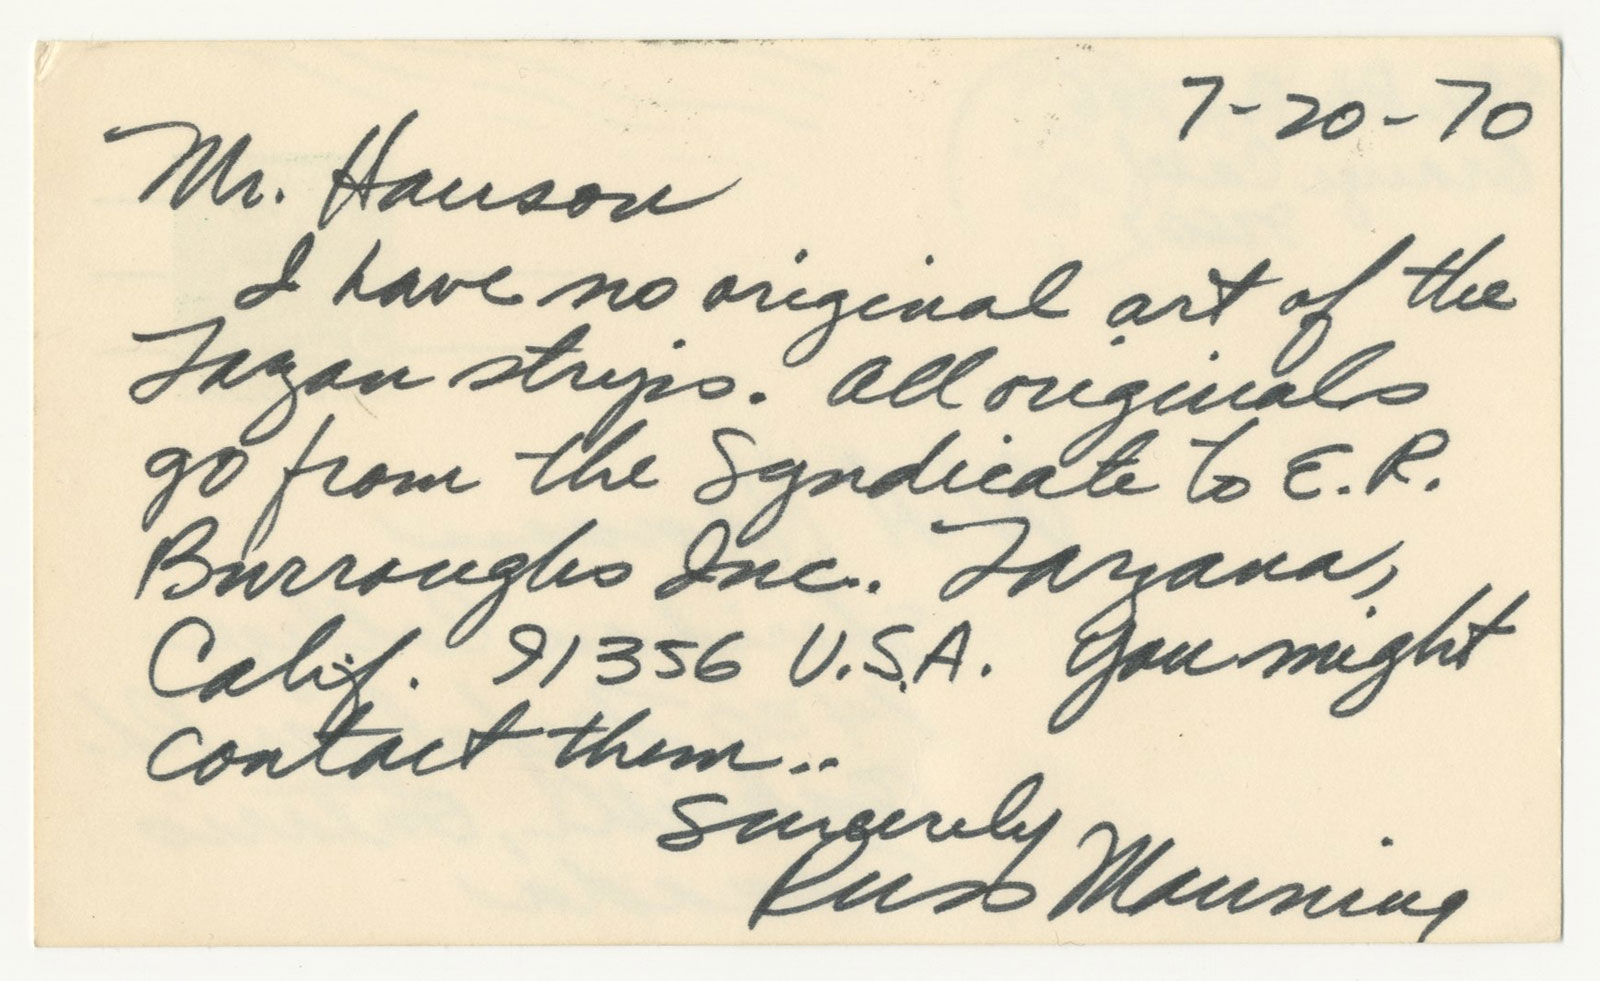 7-20-70
Mr. Hanson
I have no original art of the
Tazan strips. All originals
go from the Syndicate to E.R.
Burroughs Inc.. Tarzana,
Calif. 91356 U.S.A. You might
contact them..
Sincerely
Russ Manning